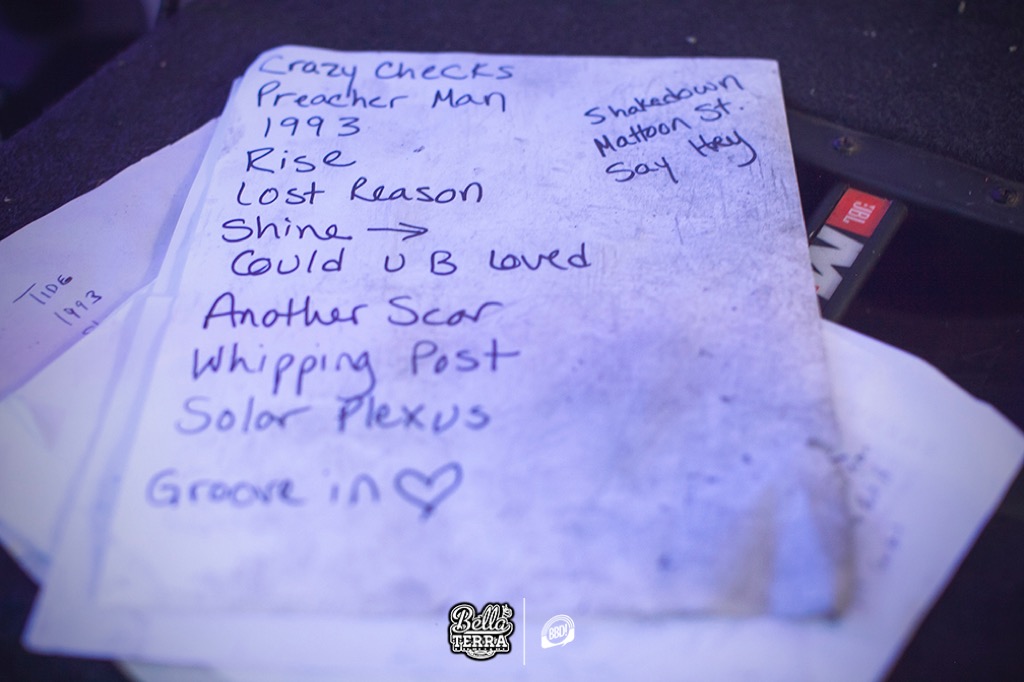 Crazy Checks
Preacher Man
1993
Rise
Lost Reason
Shine →
Could U B Loved
Another Scar
Whipping Post
Solar Plexus
Groove in ♡
Shakedown
Mattoon St.
Say Hey
TIDE
1993
JBL
M
Bella
TERRA
BBD!